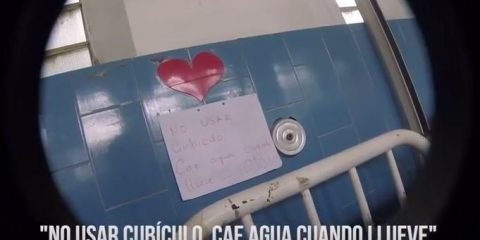 NO USAR
Cubiculo
Cae agua cuando
llueve
"NO USAR CUBÍCULO, CAE AGUA CUANDO LLUEVE"